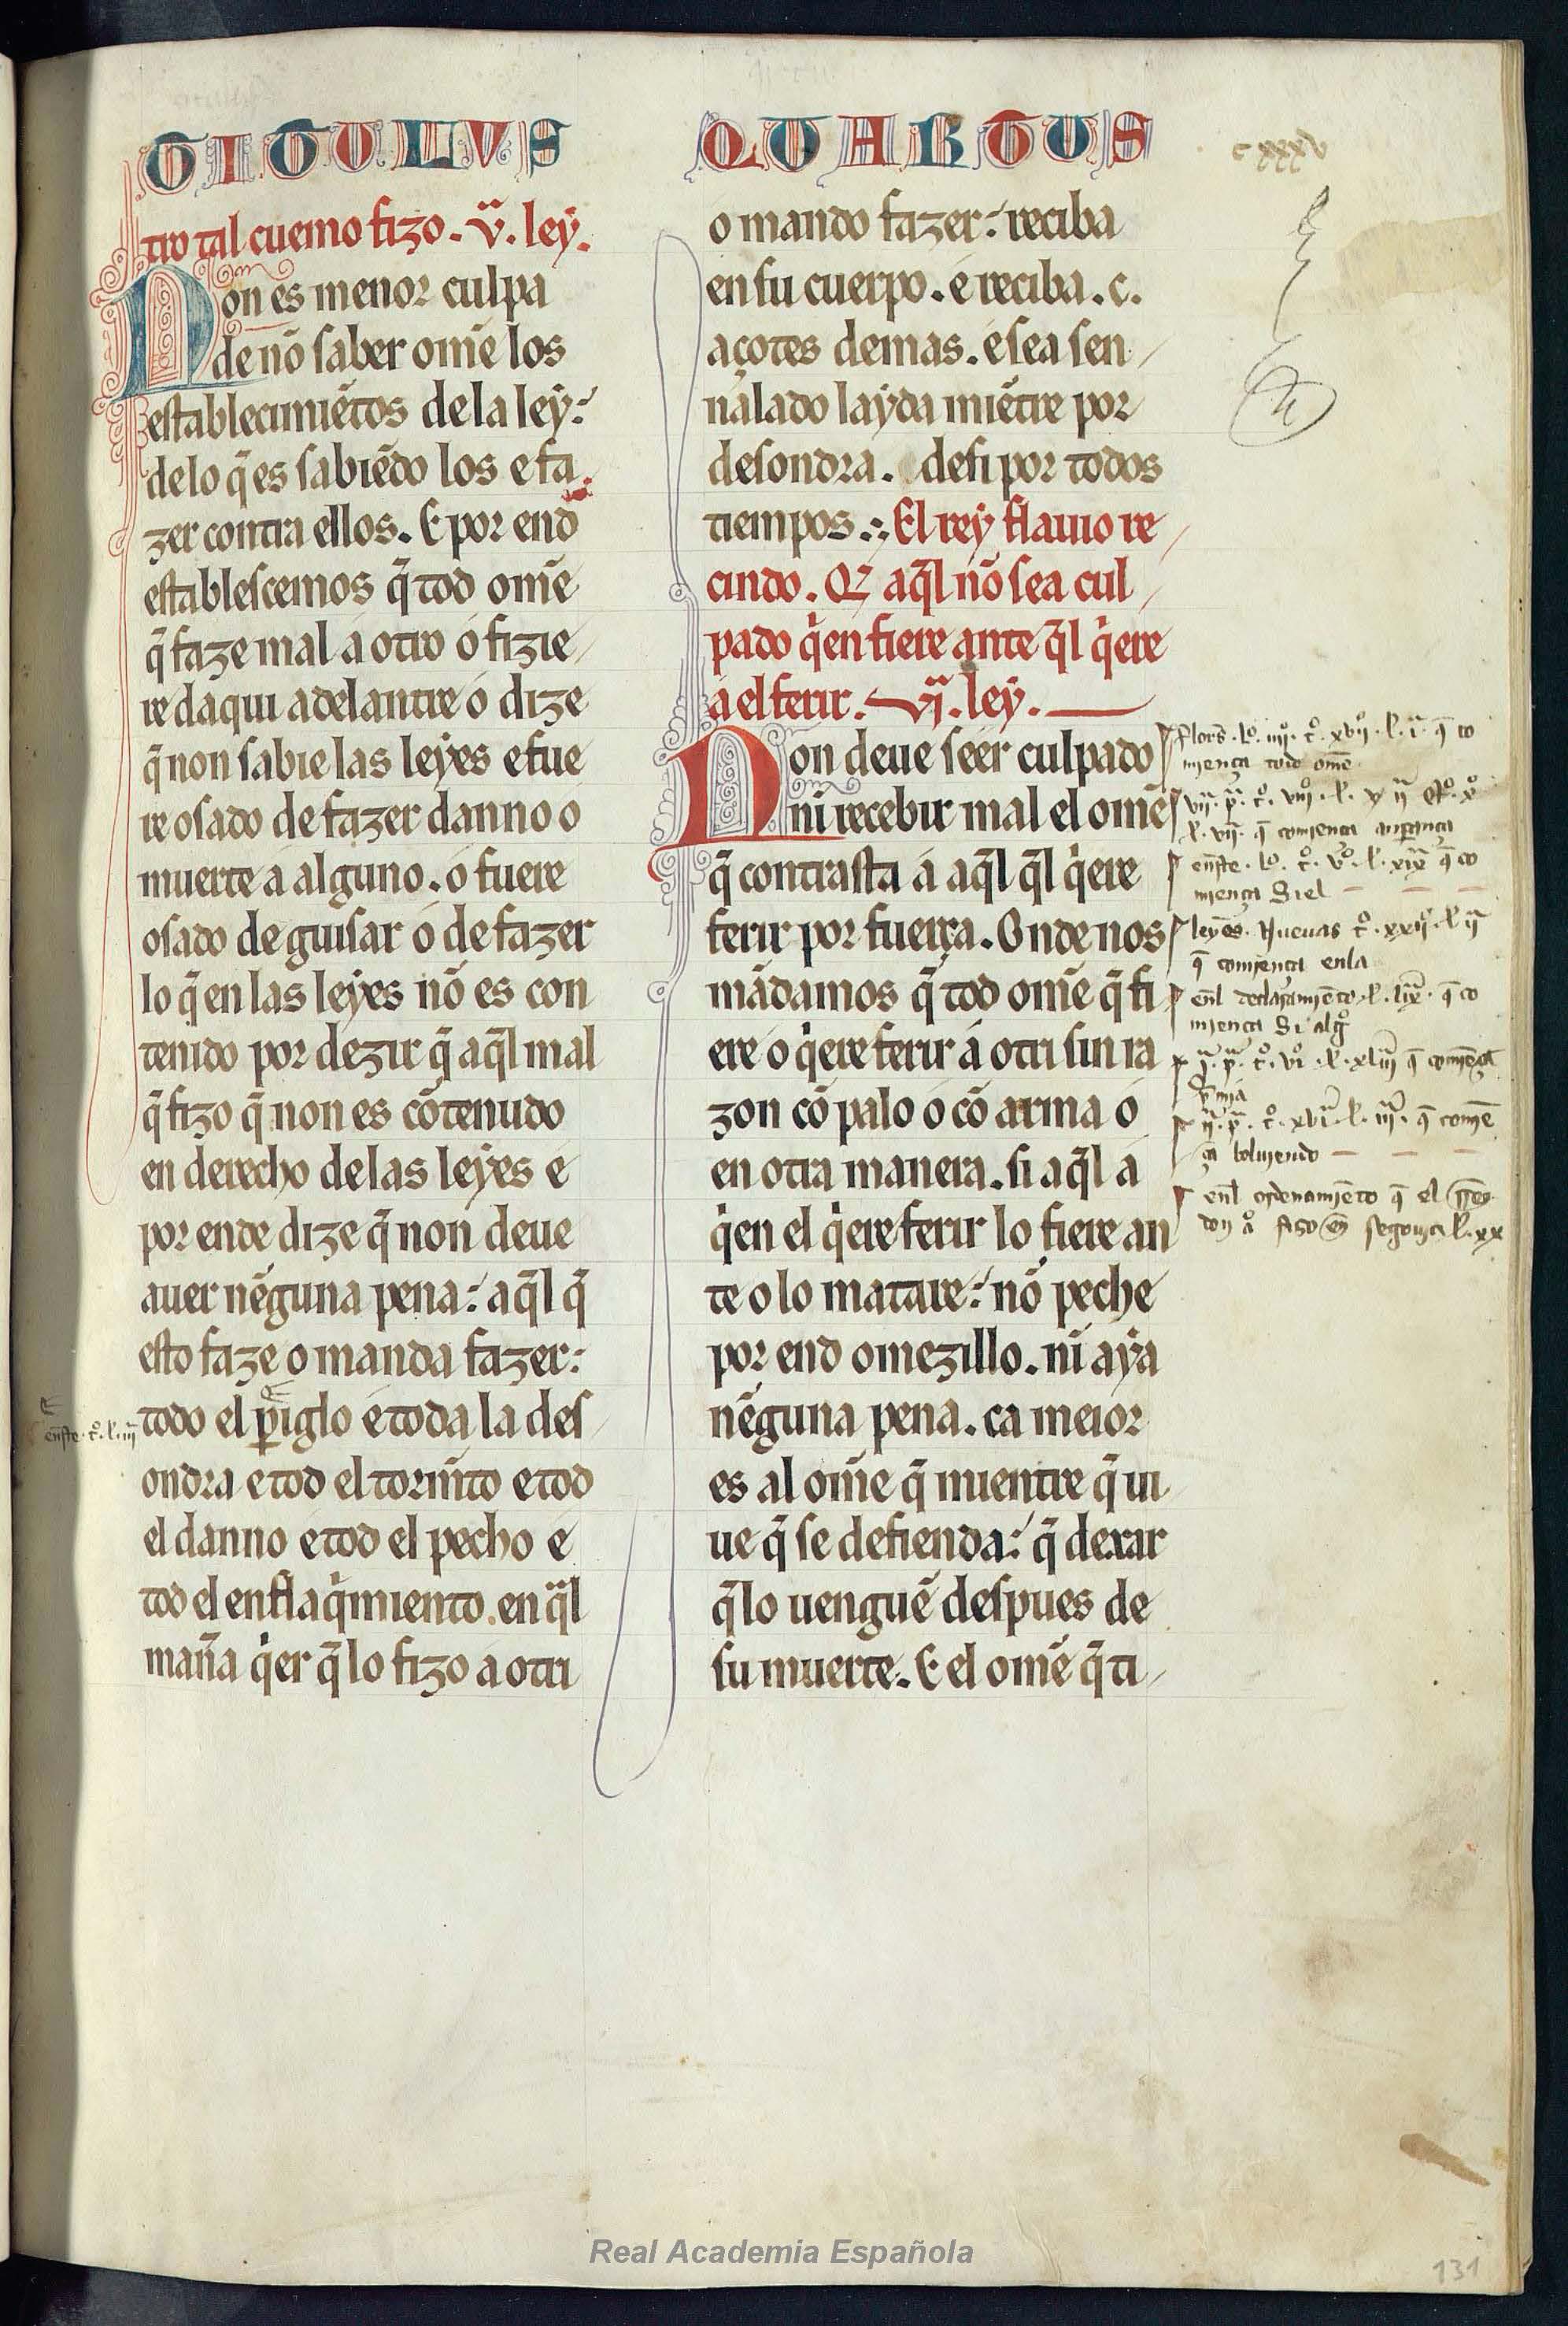 TITULVS
tro tal cuemo fizo. v.ª ley.
Non es menor culpa
de nõ saber om̃e los
establecimiẽtos de la ley:
de lo q̃ es sabiẽdo los e fa
zer contra ellos. E por end
establescemos q̃ tod om̃e
q̃ faze mal á otro ó fizie
re daqui adelantre ó dize
q̃ non sabie las leyes e fue
re osado de fazer danno ó
muerte á alguno. ó fuere
osado de guisar ó de fazer
lo q̃ en las leyes nõ es con
tenido por dezir q̃ aq̃l mal
q̃ fizo q̃ non es cõtenudo
en derecho de las leyes e
por ende dize q̃ non deue
auer nẽguna pena: aq̃l q̃
esto faze o manda fazer:
todo el piglo é toda la des
ondra e tod el torm̃to e tod
el danno é tod el pecho é
tod el enflaq̃miento. en q̃l
mañа q̃er q̃ lo fizo a otri
QUARTUS
cxxxv
o mando fazer: reciba
en su cuerpo. é reciba. c.
açotes demas. é sea sen
nalado layda miẽtre por
desondra. desi por todos
tiempos.: El rey flauio re
cindo. Q̃ aq̃l nõ sea cul
pado q̃en fiere ante q̃l q̃ere
á el ferir. vj.ª ley.
Non deue seer culpado
nĩ recebir mal el om̃e
q̃ contrasta á aq̃l q̃l q̃ere
ferir por fuerça. Onde nos
mãdamos q̃ tod om̃e q̃ fi
ere ó q̃ere ferir á otri sin ra
zon cõ palo ó cõ arma ó
en otra manera. si aq̃l á
q̃en el q̃ere ferir lo fiere an
te o lo matare: nõ peche
por end omezillo. nĩ aya
nẽguna pena. ca meior
es al om̃e q̃ mientre q̃ ui
ue q̃ se defienda: q̃ dexar
q̃ lo uenguẽ despues de
su muerte. E el om̃e q̃ ti
q̃ co
mienca todo om̃e
q̃ comienca
q̃ co
mienca Si el
leyes. Nueuas tº. xxiijº. l. ijª
q̃ comienca en la
q̃ co
mienca Si algº
q̃ comẽ
ça boluiendo
enl ordenamiẽto q̃ el
segouia l. xx
Real Academia Española
131